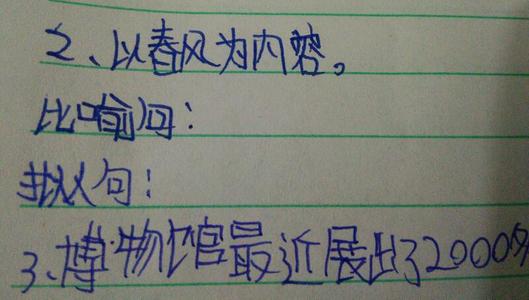 2、以春风为内容。
比喻句：
拟人句：
3、博物馆最近展出了2000多